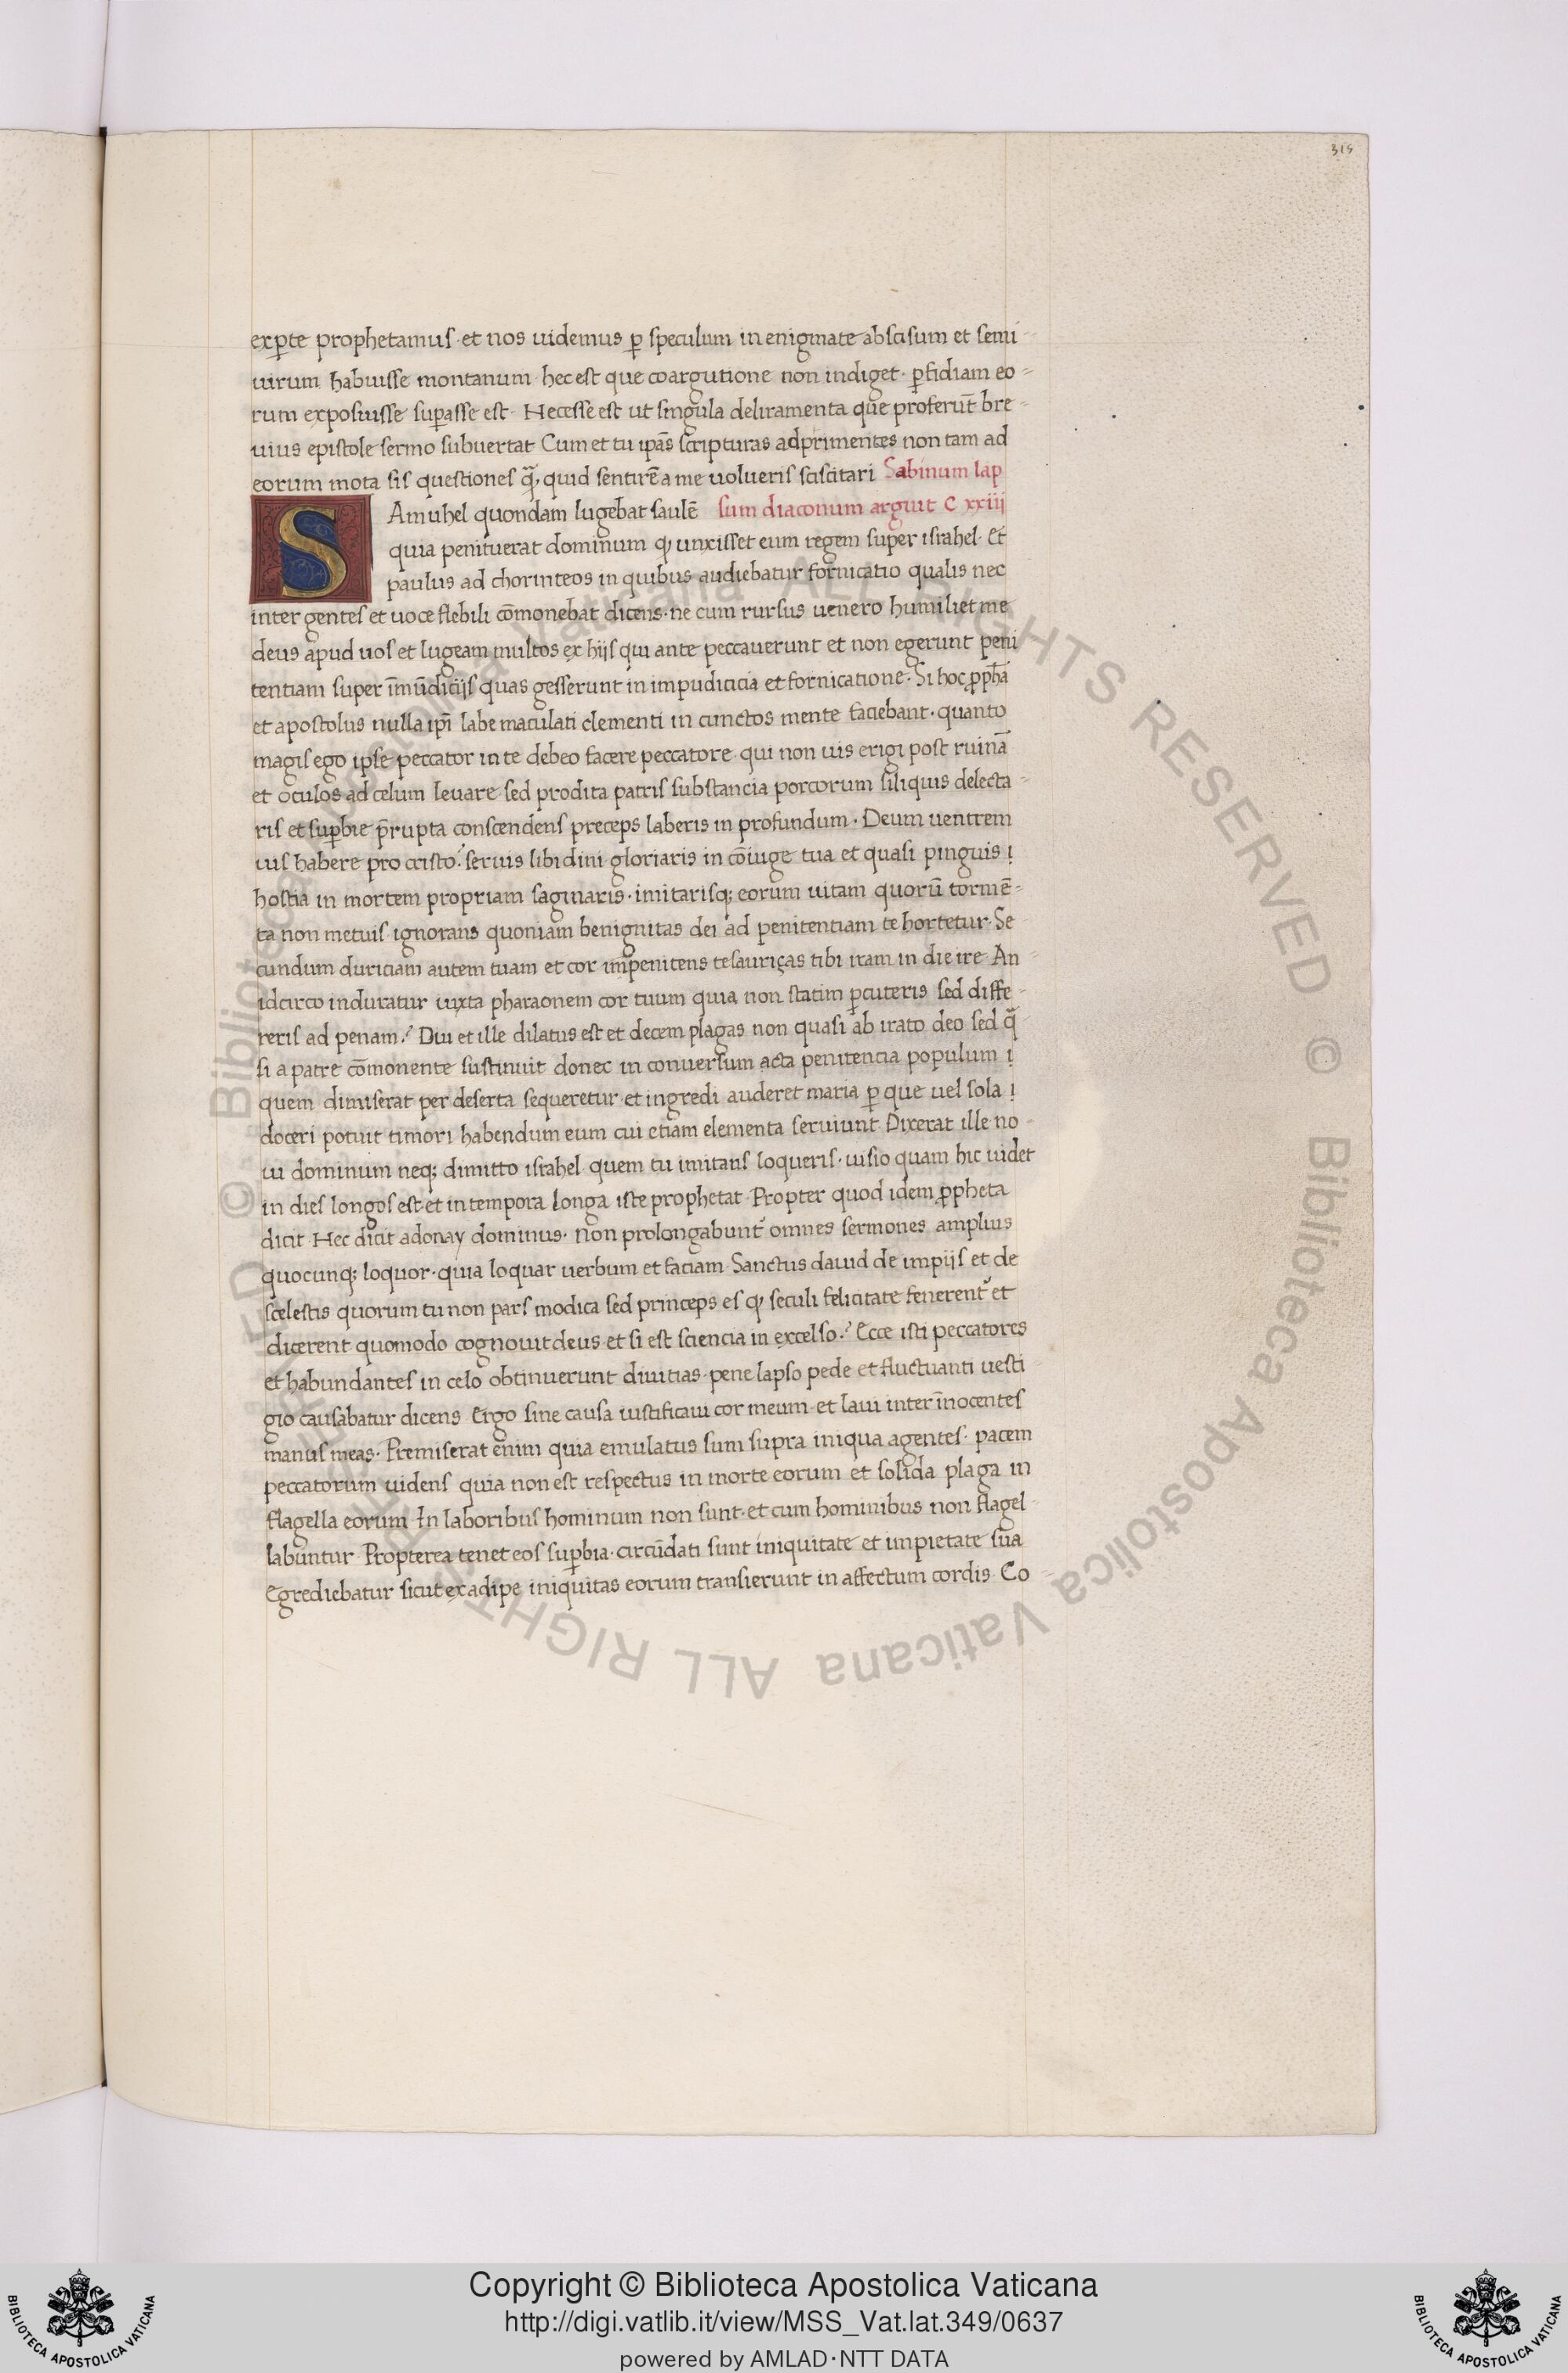 319
exꝑte prophetamus · et nos uidemus ꝑ speculum in enigmate abscisum et semi-
uirum habuisse montanum · hec est que coargutione non indiget · ꝑfidiam eo-
rum exposuisse suꝑasse est · Necesse est ut singula deliramenta que proferūt bre-
uius epistole sermo subuertat Cum et tu ip̄as scripturas adprimentes non tam ad
eorum mota sis questiones q̄, quid sentirē a me uolueris sciscitari Sabinum lap
SAmuhel quondam lugebat saulē sum diaconum arguit C xxiij
quia penituerat dominum ꝙ unxisset eum regem super israhel · Et
paulus ad chorinteos in quibus audiebatur fornicatio qualis nec
inter gentes et uoce flebili cōmonebat dicens · ne cum rursus uenero humiliet me
deus apud uos et lugeam multos ex hijs qui ante peccauerunt et non egerunt peni
tentiam super īmūdicijs quas gesserunt in impudicicia et fornicatione · Si hoc ꝓph̄a
et apostolus nulla ip̄i labe maculati clementi in cunctos mente faciebant · quanto
magis ego ipse peccator in te debeo facere peccatore · qui non uis erigi post ruinā
et oculos ad celum leuare sed prodita patris substancia porcorum siliquis delecta-
ris et suꝑbie p̄rupta conscendens preceps laberis in profundum · Deum uentrem
uis habere pro cristo? seruis libidini gloriaris in cōiuge tua et quasi pinguis
hostia in mortem propriam saginaris · imitarisq; eorum uitam quorū tormē-
ta non metuis ignorans quoniam benignitas dei ad penitentiam te hortetur · Se
cundum duriciam autem tuam et cor impenitens tesauriças tibi iram in die ire An
idcirco induratur iuxta pharaonem cor tuum quia non statim ꝑcuteris sed diffe-
reris ad penam? Diu et ille dilatus est et decem plagas non quasi ab irato deo sed q̄
si a patre cōmonente sustinuit donec in conuersum acta penitencia populum
quem dimiserat per deserta sequeretur et ingredi auderet maria ꝑ que uel sola
doceri potuit timori habendum eum cui etiam elementa seruiunt Dixerat ille no
ui dominum neq; dimitto israhel quem tu imitans loqueris · uisio quam hic uidet
in dies longos est et in tempora longa iste prophetat Propter quod idem ꝓpheta
dicit Hec dicit adonay dominus · Non prolongabunt᷑ omnes sermones amplius
quocunq; loquor · quia loquar uerbum et faciam Sanctus dauid de impijs et de
scelestis quorum tu non pars modica sed princeps es ꝙ seculi felicitate fenerent᷑ et
dicerent quomodo cognouit deus et si est sciencia in excelso? Ecce isti peccatores
et habundantes in celo obtinuerunt diuitias · pene lapso pede et fluctuanti uesti
gio causabatur dicens Ergo sine causa iustificaui cor meum et laui inter īnocentes
manus meas · Premiserat enim quia emulatus sum supra iniqua agentes · pacem
peccatorum uidens quia non est respectus in morte eorum et solida plaga in
flagella eorum In laboribus hominum non sunt · et cum hominibus non flagel
labuntur Propterea tenet eos suꝑbia · circūdati sunt iniquitate et impietate sua
Egrediebatur sicut ex adipe iniquitas eorum transierunt in affectum cordis Co-
© Biblioteca Apostolica Vaticana ALL RIGHTS RESERVED © Biblioteca Apostolica Vaticana ALL RIGHTS RESERVED
Copyright © Biblioteca Apostolica Vaticana
http://digi.vatlib.it/view/MSS_Vat.lat.349/0637
powered by AMLAD·NTT DATA
BIBLIOTECA APOSTOLICA VATICANA
BIBLIOTECA APOSTOLICA VATICANA